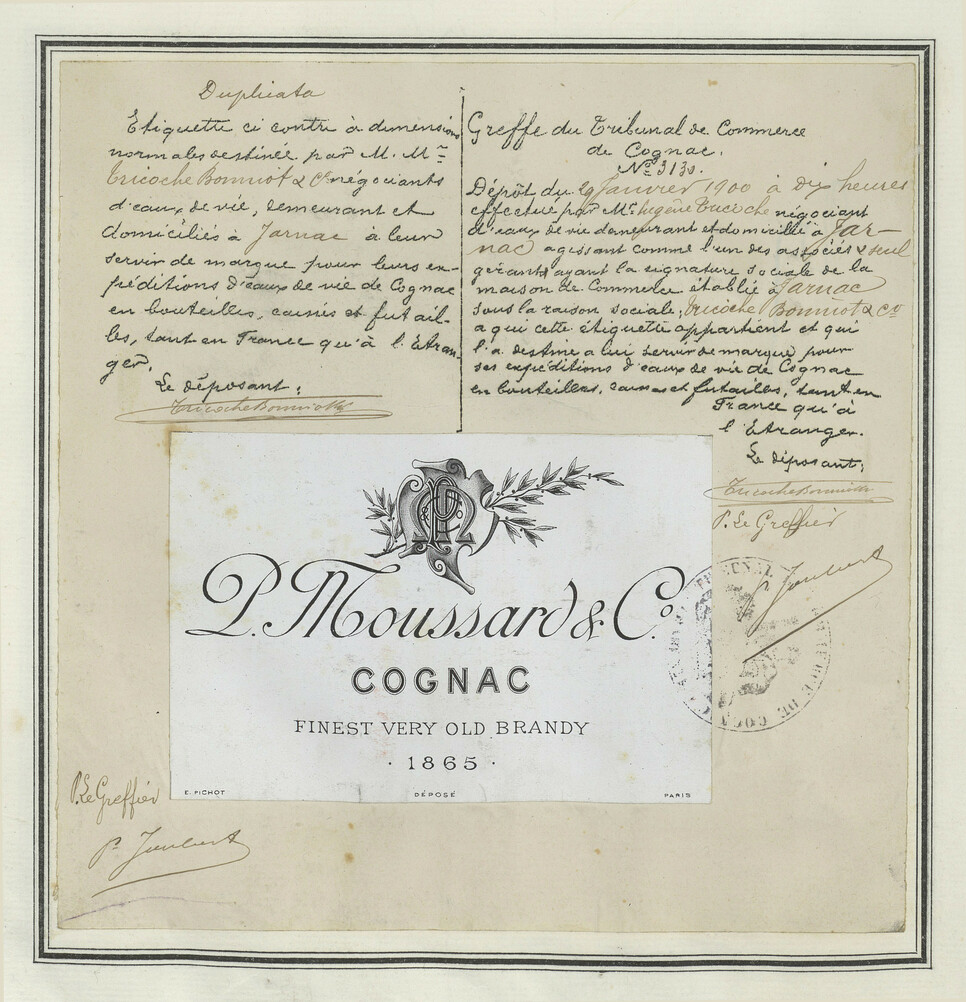 Duplicata
Etiquette ci contre à dimensions
normales destinée par M. Mrs
Tricoche Bonniot & Cie négociants
d'eaux de vie, demeurant et
domiciliés à Jarnac à leur
servir de marque pour leurs ex-
péditions d'eaux de vie de Cognac
en bouteilles, caisses et futail-
les, tant en France qu'à l'Etran-
ger.
Le déposant:
Tricoche Bonniot & Cie
Greffe du Tribunal de Commerce
de Cognac.
No 3130.
Dépôt du 29 Janvier 1900 à dix heures
effectué par Mr Eugène Tricoche négociant
d'eaux de vie demeurant et domicilié à Jar-
nac agissant comme l'un des associés & seul
gérants ayant la signature sociale de la
maison de Commerce établie à Jarnac
sous la raison sociale; Tricoche Bonniot & Co
a qui cette étiquette appartient et qui
l'a destine a lui servir de marque pour
ses expéditions d'eaux de vie de Cognac
en bouteilles, caisses et futailles, tant en
France qu'à
l'Etranger.
Le déposant;
Tricoche Bonniot & Cie
P. Le Greffier
P. Moussard & Co.
COGNAC
FINEST VERY OLD BRANDY
· 1865 ·
E. PICHOT DÉPOSÉ PARIS
P. Le Greffier